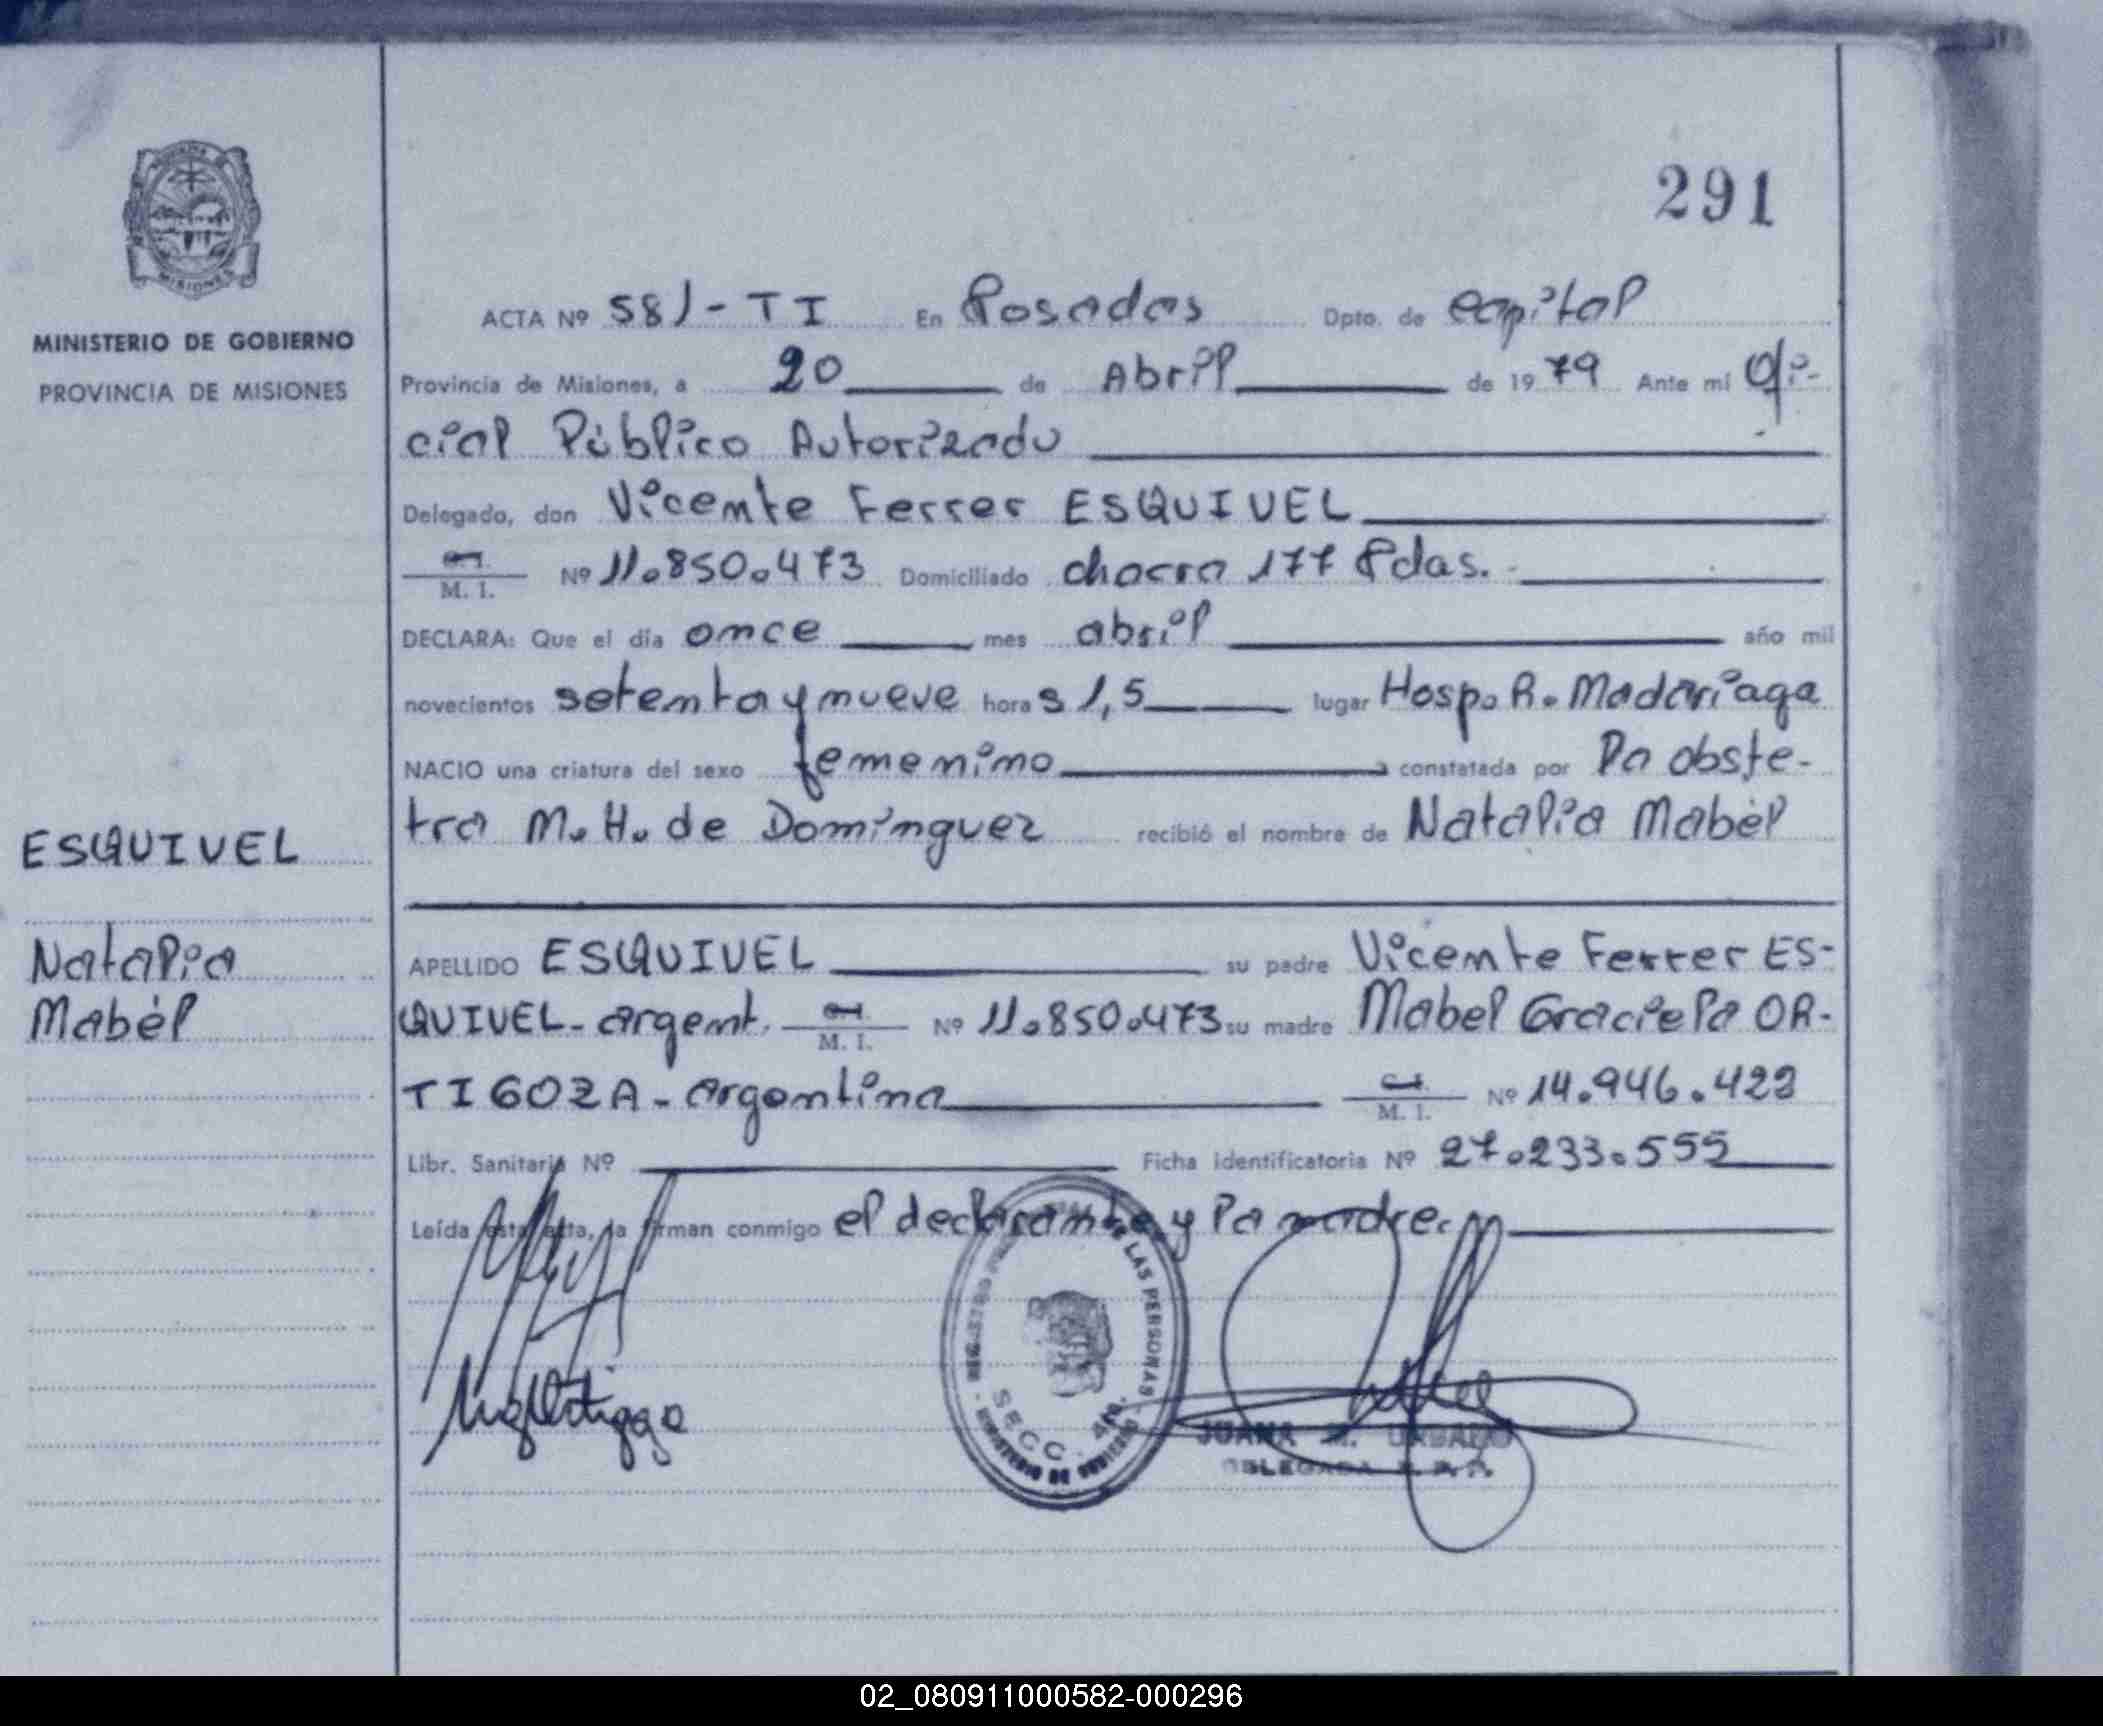 291
PROVINCIA DE
MISIONES
MINISTERIO DE GOBIERNO
PROVINCIA DE MISIONES
ACTA Nº 581-TI En Posadas Dpto. de capital
Provincia de Misiones, a 20 de Abril de 1979 Ante mí Ofi-
cial Público Autorizado
Delegado, don Vicente Ferrer ESQUIVEL
M. I. Nº 11.850.473 Domiciliado chacra 177 Pdas.
DECLARA: Que el día once mes abril año mil
novecientos setenta y nueve horas 1,5 lugar Hosp. R. Madariaga
NACIO una criatura del sexo femenino constatada por la obste-
tra M. H. de Domínguez recibió el nombre de Natalia Mabél
ESQUIVEL
Natalia
Mabél
APELLIDO ESQUIVEL su padre Vicente Ferrer ES-
QUIVEL - argent. M. I. Nº 11.850.473 su madre Mabel Graciela OR-
TIGOZA - argentina M. I. Nº 14.946.422
Libr. Sanitaria Nº Ficha identificatoria Nº 27.233.555
Leída esta acta, la firman conmigo el declarante y la madre.
DE LAS PERSONAS
SECC. 4ta.
MINISTERIO DE GOBIERNO
JUANA M.
DELEGADA R. P. P.
02_080911000582-000296